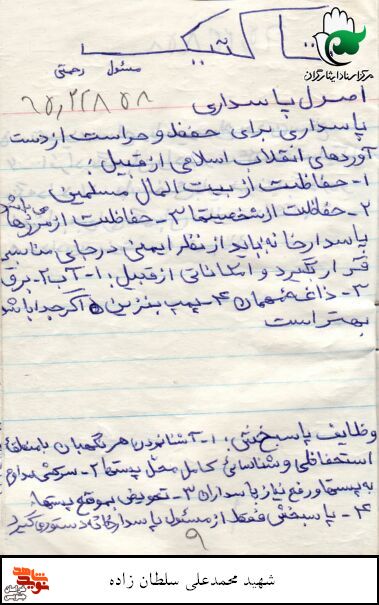 تاکتیک
مسئول رحمتی
مرکز اسناد ایثارگران
اصول پاسداری
پاسداری برای حفظ و حراست از دست
آوردهای انقلاب اسلامی از قبیل:
۱- حفاظت از بیت المال مسلمین
۲- حفاظت از شخصیتها ۳- حفاظت از مرزها می باشد
پاسدارخانه: باید از نظر ایمنی در جای مناسبی
قرار گیرد و امکاناتی از قبیل: ۱- آب ۲- برق
۳- ذاغه مهمات ۴- پمپ بنزین اگر جدا باشد
بهتر است
وظایف پاسبخش: ۱- آشنا نمودن هر نگهبان با منطقهٔ
استحفاظی و شناسائی کامل محل پستها ۲- سرکشی مداوم
به پستها و رفع نیاز پاسداران ۳- تعویض بموقع پستها
۴- پاسبخش فقط از مسئول پاسدارخانه دستور می گیرد
۹
شهید محمدعلی سلطان زاده